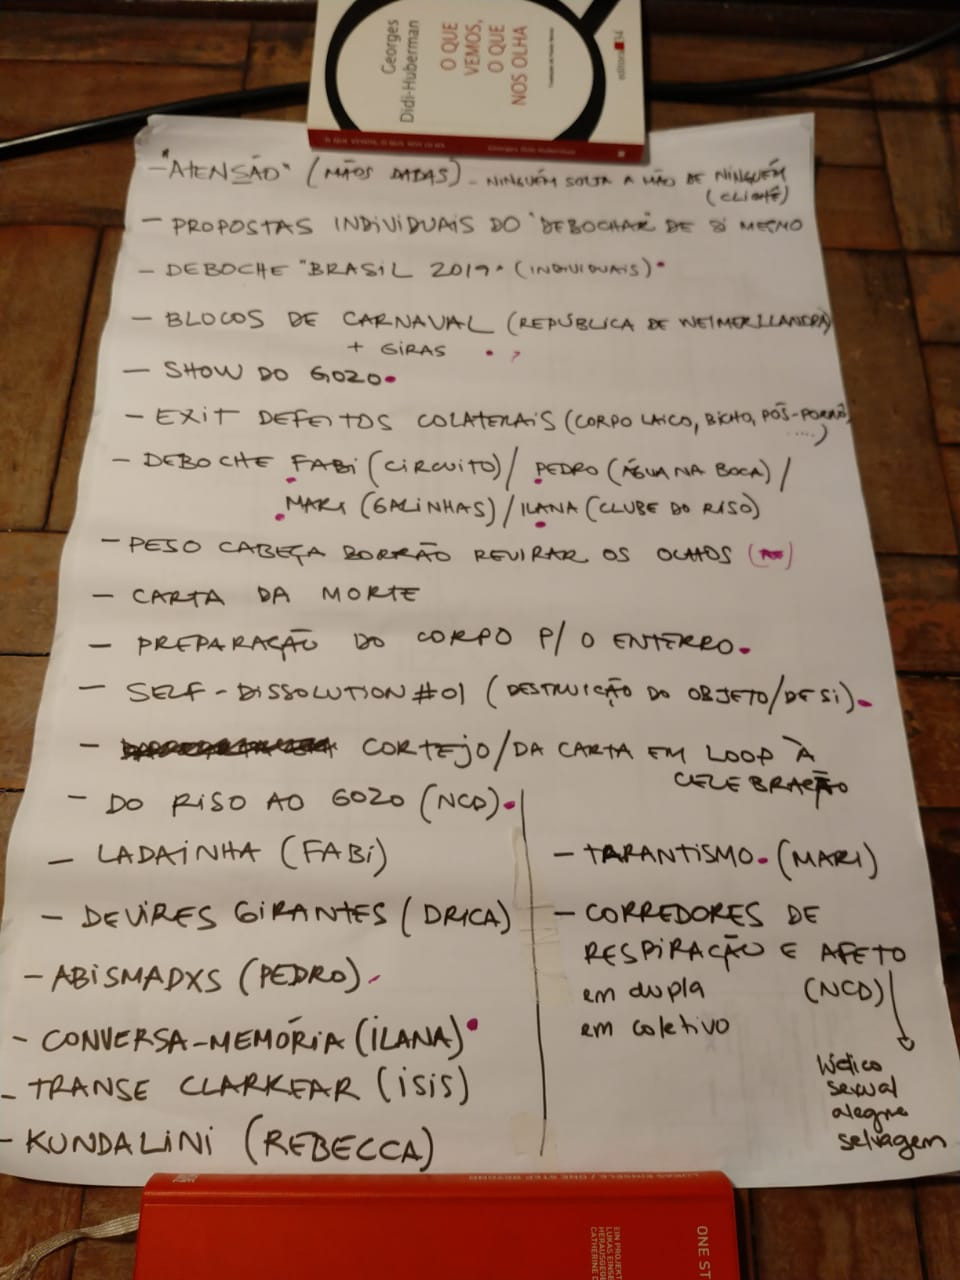 Georges
Didi-Huberman
O QUE
VEMOS,
O QUE
NOS OLHA
editora 34
O QUE VEMOS, O QUE NOS OLHA
Georges Didi-Huberman
- "ATENSÃO" (MÃOS DADAS) - NINGUÉM SOLTA A MÃO DE NINGUÉM
(CLICHÊ)
- PROPOSTAS INDIVIDUAIS DO "DEBOCHAR" DE SI MESMO
- DEBOCHE "BRASIL 2019" (INDIVIDUAIS)
- BLOCOS DE CARNAVAL (REPÚBLICA DE
+ GIRAS ?
- SHOW DO GOZO
- EXIT DEFEITOS COLATERAIS (CORPO LAICO, BICHO, PÓS-PORNÔ,
....)
- DEBOCHE FABI (CIRCUITO) / PEDRO (ÁGUA NA BOCA) /
MARI (GALINHAS) / ILANA (CLUBE DO RISO)
- PESO CABEÇA BORRÃO REVIRAR OS OLHOS
- CARTA DA MORTE
- PREPARAÇÃO DO CORPO P/ O ENTERRO
- SELF-DISSOLUTION #01 (DESTRUIÇÃO DO OBJETO/DE SI)
- CORTEJO/DA CARTA EM LOOP À
CELEBRAÇÃO
- DO RISO AO GOZO (NCD)
- LADAINHA (FABI)
- DEVIRES GIRANTES (DRICA)
- ABISMADXS (PEDRO)
- CONVERSA-MEMÓRIA (ILANA)
- TRANSE CLARKEAR (ISIS)
- KUNDALINI (REBECCA)
- TARANTISMO (MARI)
- CORREDORES DE
RESPIRAÇÃO E AFETO
em dupla (NCD)
em coletivo
lúdico
sexual
alegre
selvagem
LUKAS EINSELE / ONE STEP BEYOND
ONE ST
EIN PROJEKT
LUKAS EINSE
HERAUSGEGE
CATHERINE D